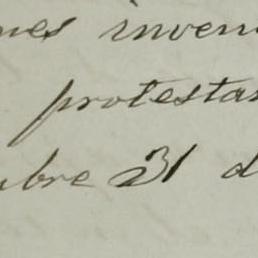 nes inven
protestan
ubre 31 d